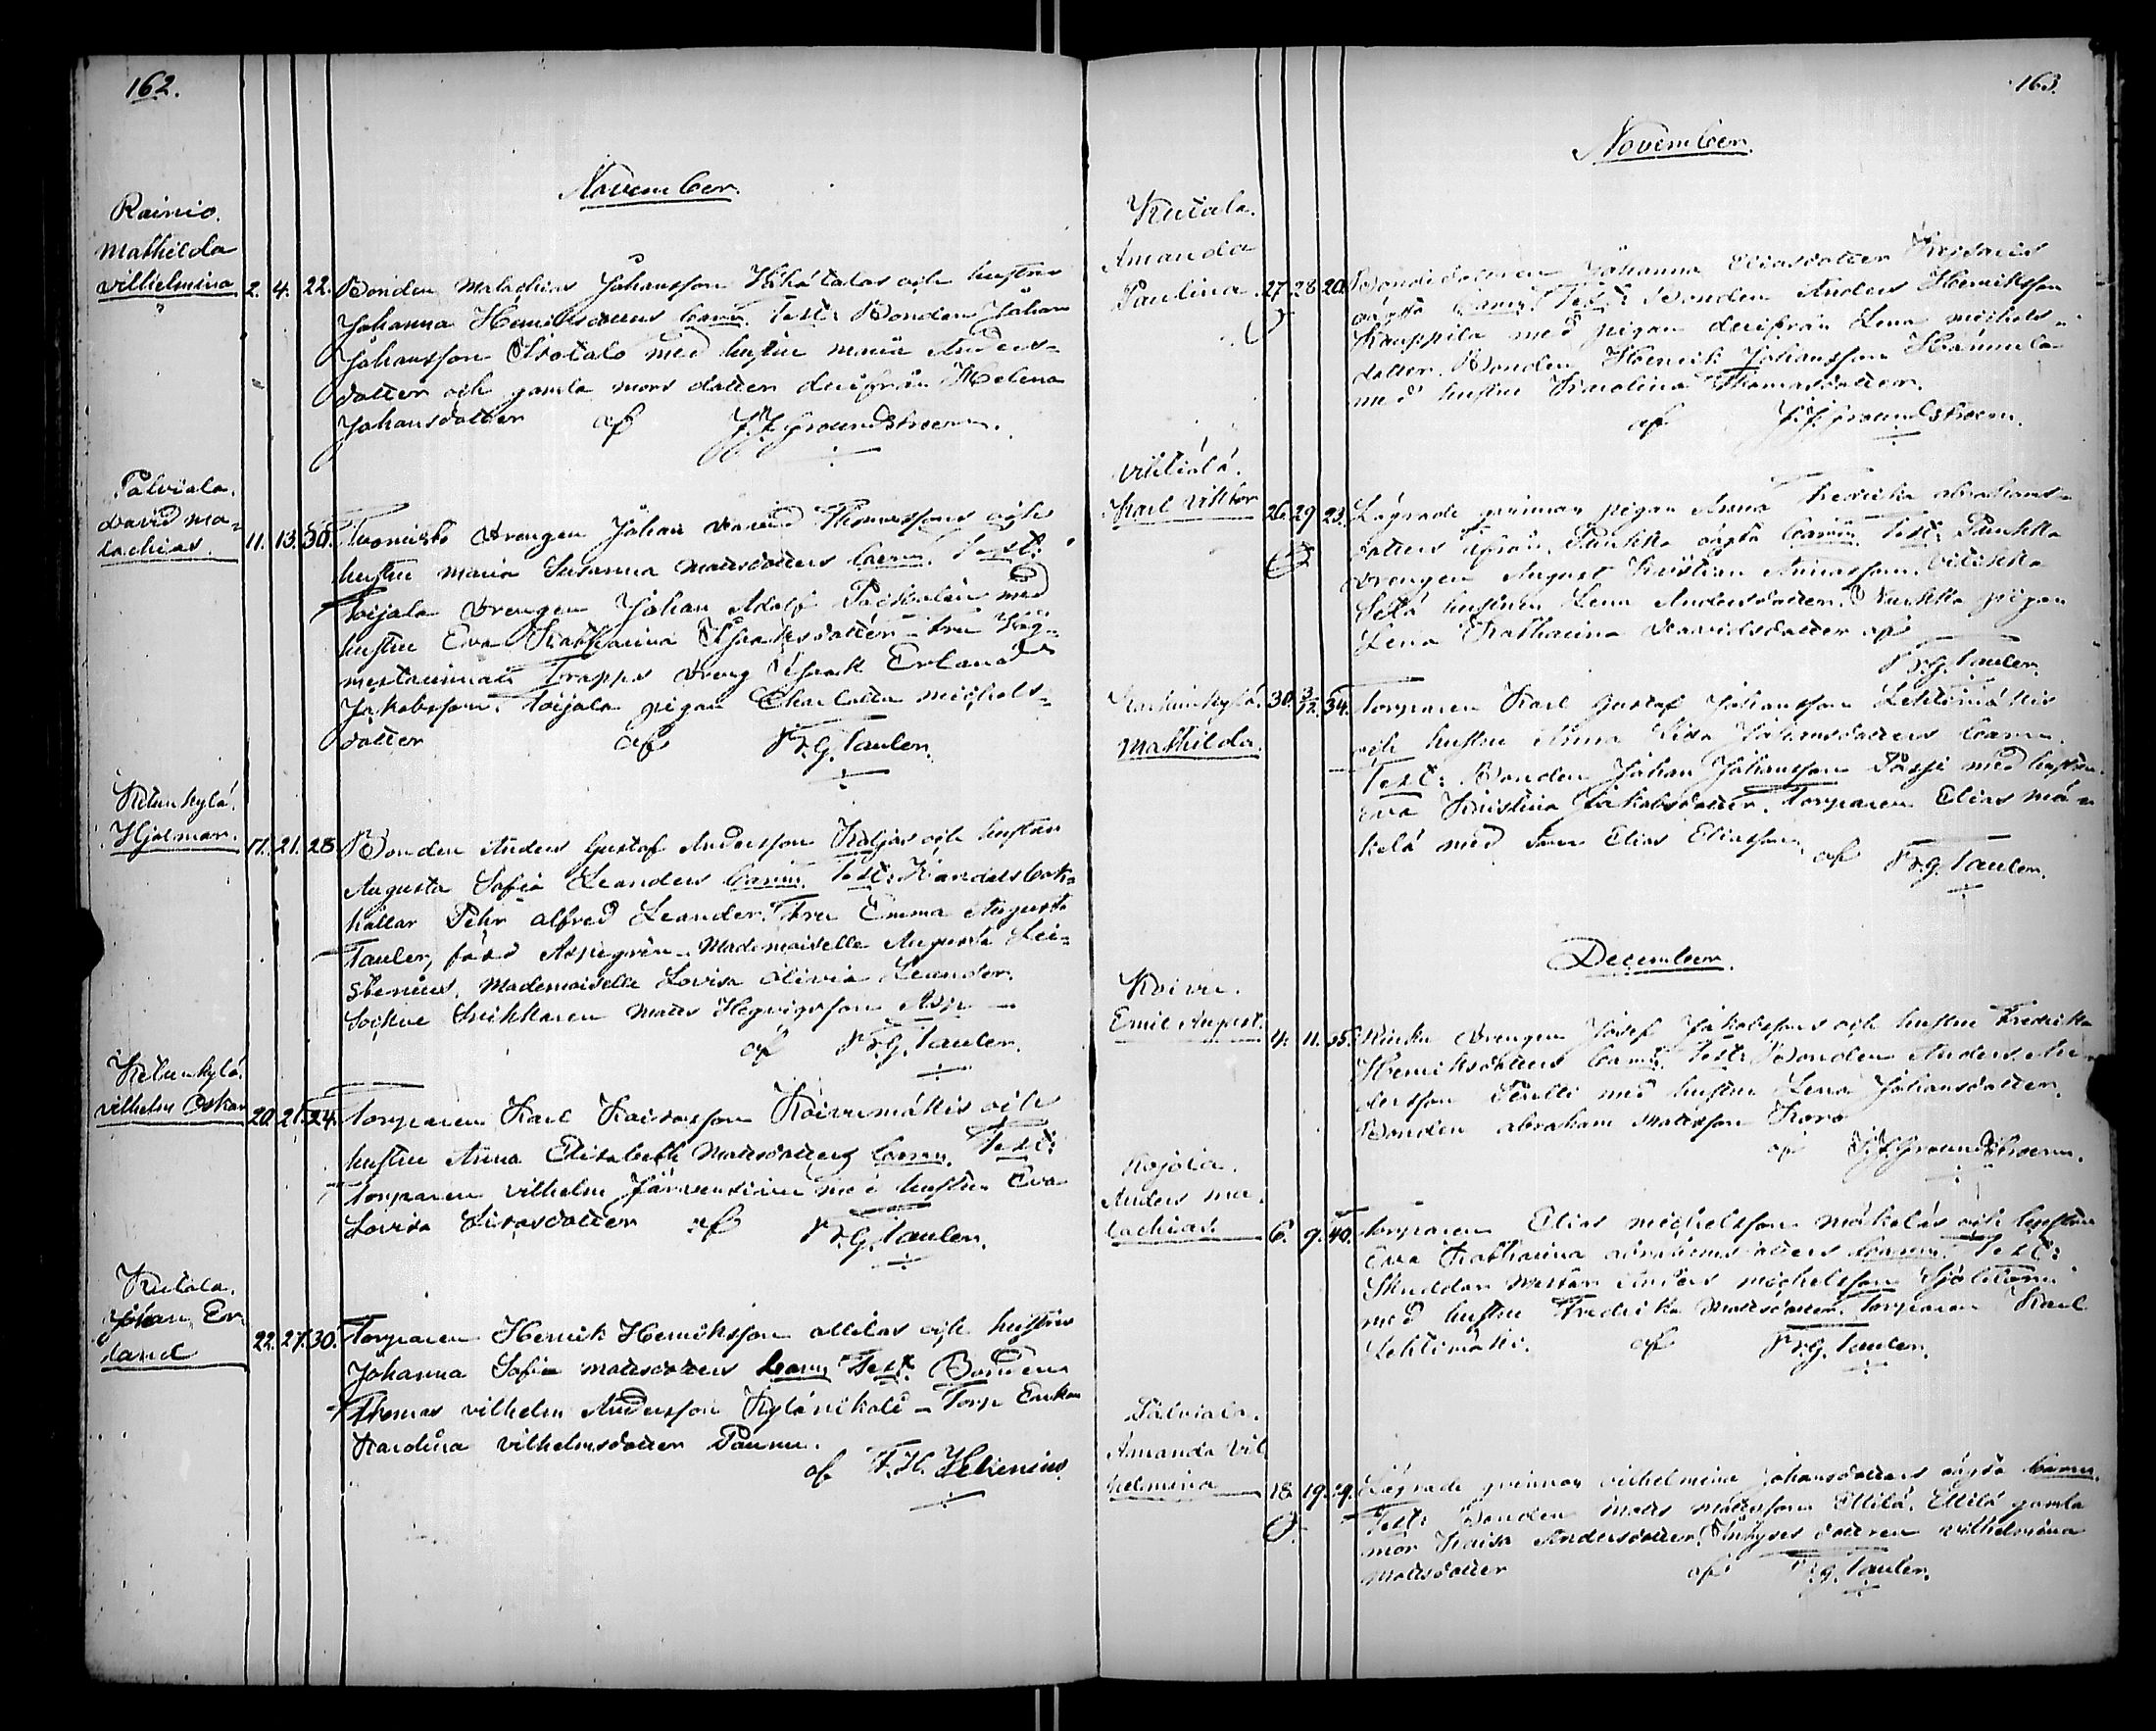 162.
November.
Rainio.
Mathilda
Vilhelmina 2. 4. 22. Bonden Malachias Johansson och hustru
Johanna Henriksdotters barn. Test: Bonden Johan
Johansson Isotalo med hustru Maria Anders-
dotter och gamla mors dotter derifrån Helena
Johansdotter af J.J. Groundstroem.
Palviala.
David Ma-
lachias. 11. 13. 30. Drengen Johan David Thomassons och
hustru Maria Susanna Mattsdotters barn. Test:
Toijala Drengen Johan Adolf med
hustru Eva Katharina Isaksdotter - Fru
Trapps Dreng Isaak Erland
Jakobsson. Toijala pigan Charlotta Michels-
dotter af Fr.G. Tauler.
Ketunkylä.
Hjalmar. 17. 21. 28. Bonden Anders Gustaf Andersson Kaljas och hustru
Augusta Sofia Leanders barn. Test: Handelsbok-
hållar Pehr Alfred Leander. Fru Emma Augusta
Tauler, född Aspegrén. Mademoiselle Augusta Lei-
stenius. Mademoiselle Lovisa Olivia Leander.
Sockne Snikkaren Matts Asp
af Fr.G. Tauler.
Ketunkylä.
Vilhelm Oskar 20. 21. 24. Torparen Karl Karlsson Koivumäkis och
hustru Anna Elisabeth Mattsdotters barn. Test:
Torparen Vilhelm Järvensivu med hustru Eva
Lovisa af Fr.G. Tauler.
Kutala.
Johan Er-
land 22. 27. 30. Torparen Henrik Henriksson och hustru
Johanna Sofia Mattsdotters barn Test. Bonden
Thomas Vilhelm Andersson - Torp Enkan
Karolina Vilhelmsdotter
af F.H.
163.
November.
Kutala.
Amanda
Paulina. 27. 28. 20. Bondedottren Johanna Eliasdotter
oägta barn. Test: Bonden Anders Henriksson
Kauppila med pigan derifrån Lena Michels-
dotter. Bonden Henrik Johansson Hannula
med hustru Karolina Thomasdotter.
af J.J. Groundstroem.
Karl Viktor 26. 29. 23. Lägrade qvinnan pigan Anna Fredrika Abrahams-
dotters ifrån oägta barn. Test:
Drengen August Kristian
hustrun Lena Andersdotter. pigan
Lena Katharina Davidsdotter af
Fr.G. Tauler.
Mathilda. 30. 3/12. 34. Torparen Karl Gustaf Johansson Lehtimäkis
och hustru Anna Lisa Johansdotters barn.
Test: Bonden Johan Johansson med hustru
Eva Kristina Jakobsdotter. Torparen Elias Mä-
kelä med son Elias Eliasson. af Fr.G. Tauler.
December.
Koivu.
Emil August. 4. 11. 35. Drengen Josef Jakobssons och hustru Fredrika
Henriksdotters barn. Test: Bonden Anders An-
dersson med hustru Lena Johansdotter.
Bonden Abraham Mattsson
af J.J. Groundstroem.
Kojola.
Anders Ma-
lachias. 6. 9. 40. Torparen Elias Michelsson Mäkeläs och hustru
Eva Katharina Abrahamsdotters barn. Test:
Skeddar Mästar Anders Michelsson
med hustru Fredrika Mattsdotter. Torparen Karl
Lehtimäki. af Fr.G. Tauler.
Palviala.
Amanda Vil-
helmina 18. 19. 29. Lägrade qvinnan Vilhelmina Johansdotters oägta barn.
Test: Bonden Matts Mattsson Ellilä. Ellilä gamla
mor Kaisa Andersdotter. Inhyses dottren Vilhelmina
Mattsdotter af Fr.G. Tauler.